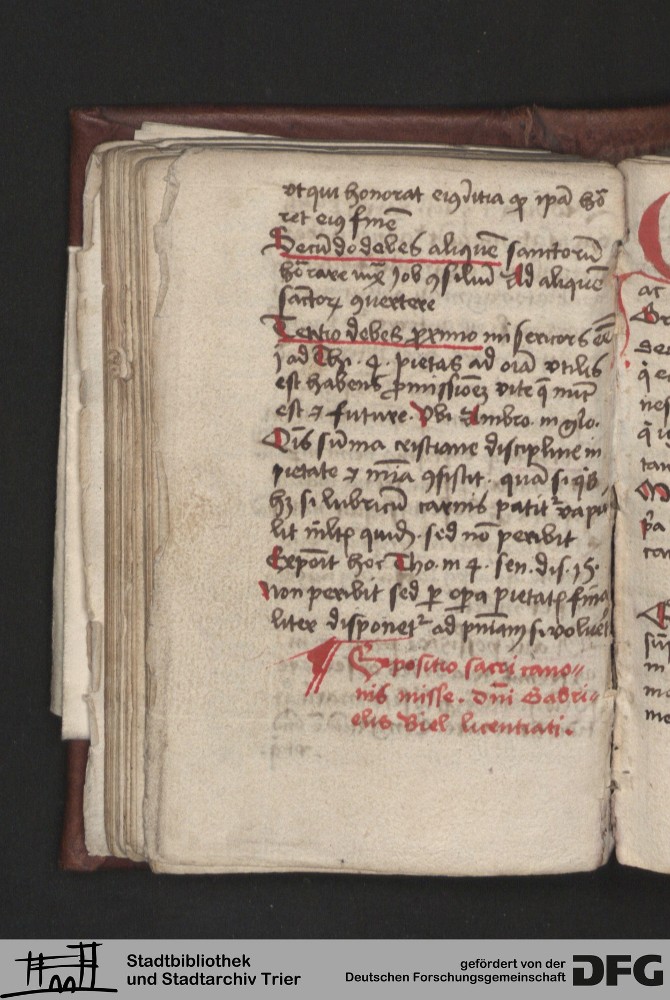 ut qui honorat eiꝰ [...] ipā hō
ret eiꝰ finē
Secūdo debes aliquē sanctorū
hōrare [...] Iob [...] Ad aliquē
sanctoꝝ ꝯuertere
Tertio debes proximo misericors eē
j ad Thi. 4. pietas ad oīa utilis
est habens ꝓmissionē vite q̄ nūc
est ⁊ future. Vbi Ambro. in glo.
Oīs sūma cristiane discipline in
pietate ⁊ mīa ꝯsistit. quā si q̇s
hꝫ si lubricū carnis patitᷣ vapu
lit [...] quidē. sed nō peribit
Exponit hoc Tho. in 4. sen. dis. 15.
non peribit sed per opera pietatꝭ fina
liter disponetᷣ ad pn̄iam si voluerit
¶ Expositio sacri cano-
nis misse. dn̄i Gabri-
elis Biel licentiati.
Stadtbibliothek
und Stadtarchiv Trier
gefördert von der
Deutschen Forschungsgemeinschaft
DFG